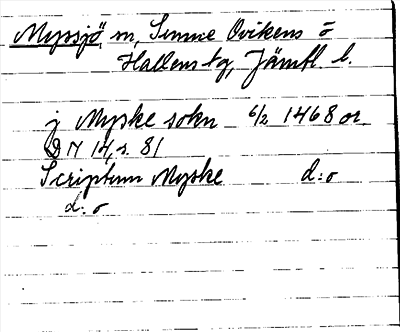 Myssjö sn, Sunne Ovikens o
Hallens tg, Jämtl. l.
j Myske sokn 6/2 1468 or.
DN 14, s. 81
Scriptum Myske d:o
d:o